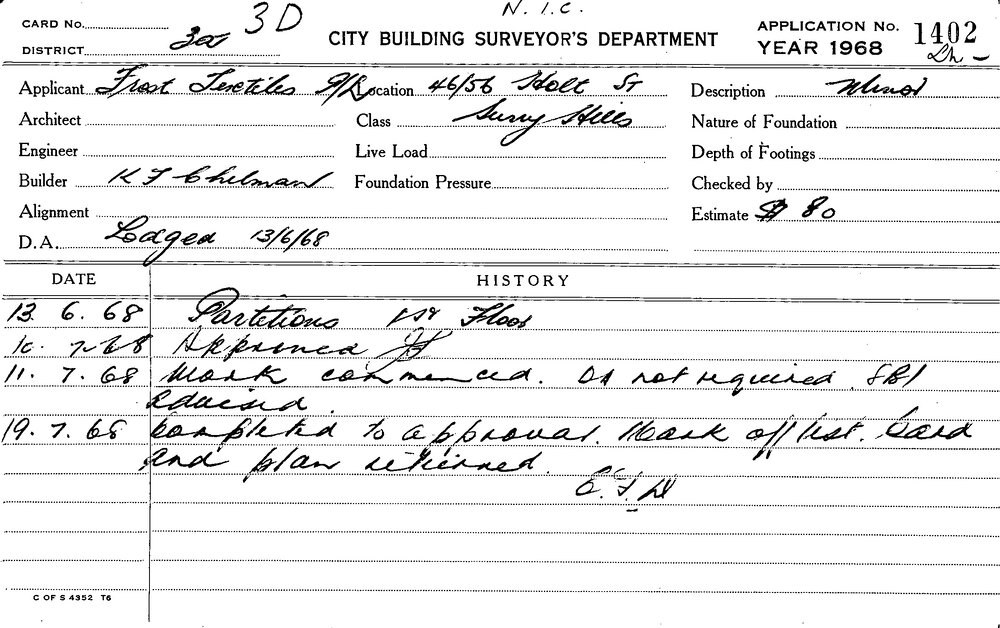 N.I.C.
CARD No. 3D
DISTRICT
CITY BUILDING SURVEYOR'S DEPARTMENT
APPLICATION No. 1402
YEAR 1968
Applicant Frost Textiles P/L Location 46/56 Holt St Description Minor
Architect Class Surry Hills Nature of Foundation
Engineer Live Load Depth of Footings
Builder K F Chelman Foundation Pressure Checked by
Alignment Estimate $ 80
D.A. Lodged 13/6/68
DATE HISTORY
13 6. 68 Partitions 1st Floor
10. 7-68 Approved
11. 7. 68 Work commenced. DA not required. SBI
advised.
19. 7. 68 Completed to approval. Mark off list. Card
and plan returned.
C OF S 4352 T6